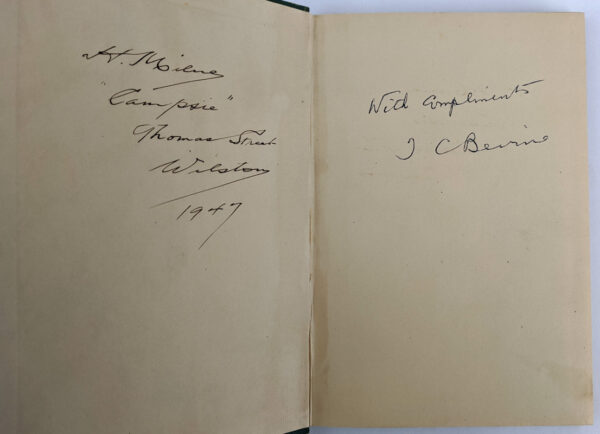 H. Milne
"Campsie"
Thomas Street
Wilston
1947
With Compliments
J C Beirne